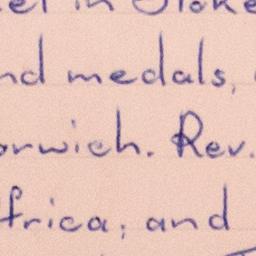 in Stoke
nd medals,
orwich. Rev.
frica; and